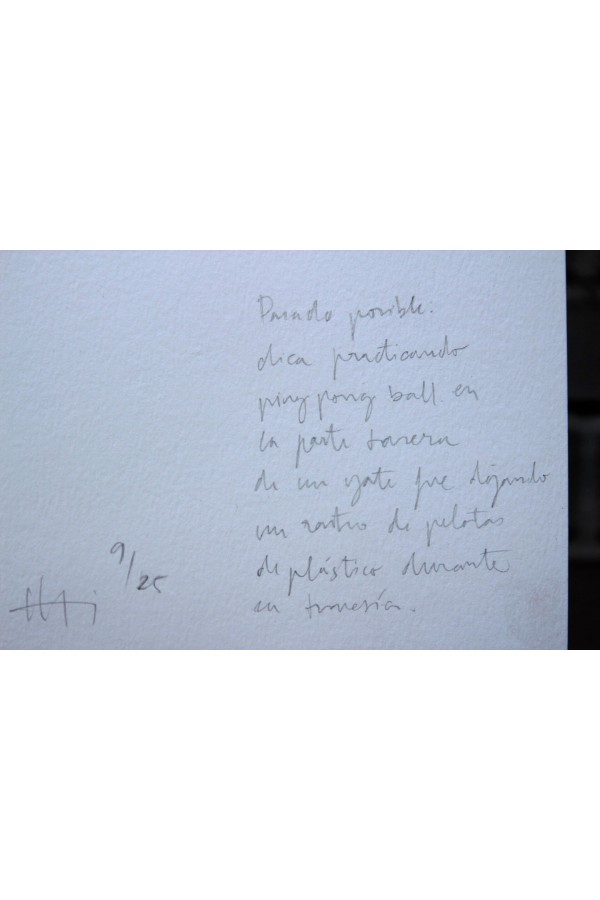 Pasado posible:
chica practicando
ping pong ball en
la parte trasera
de un yate fue dejando
un rastro de pelotas
de plástico durante
su travesía.
9/25